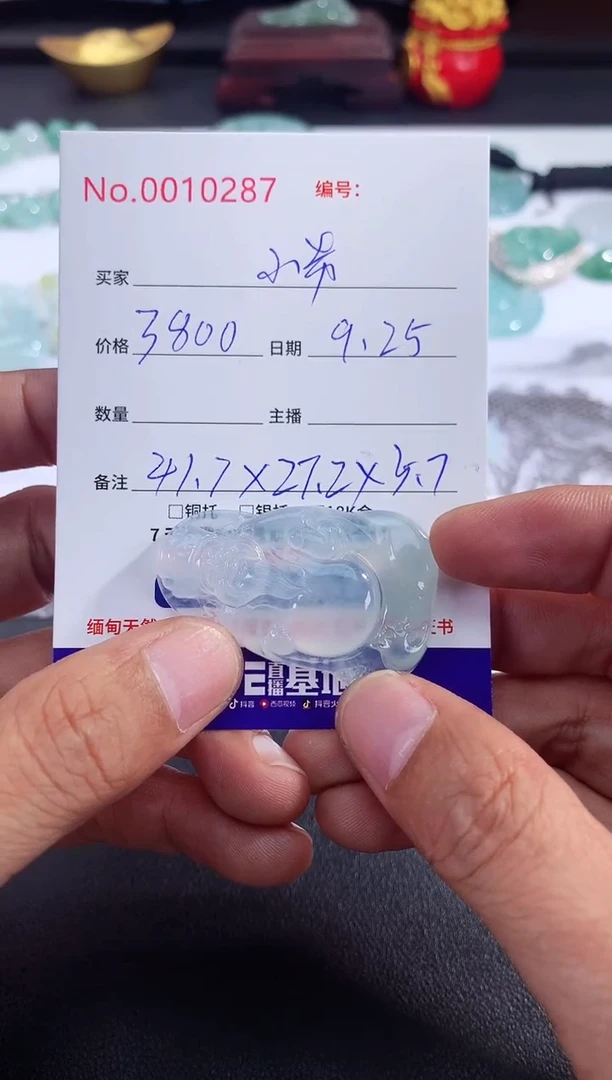 No.0010287 编号：
买家
价格 3800 日期 9.25
数量 主播
备注 41.7×27.2×5.7
□铜托 □银托
7天
缅甸天然 证书
直播基地
抖音 西瓜视频 抖音火